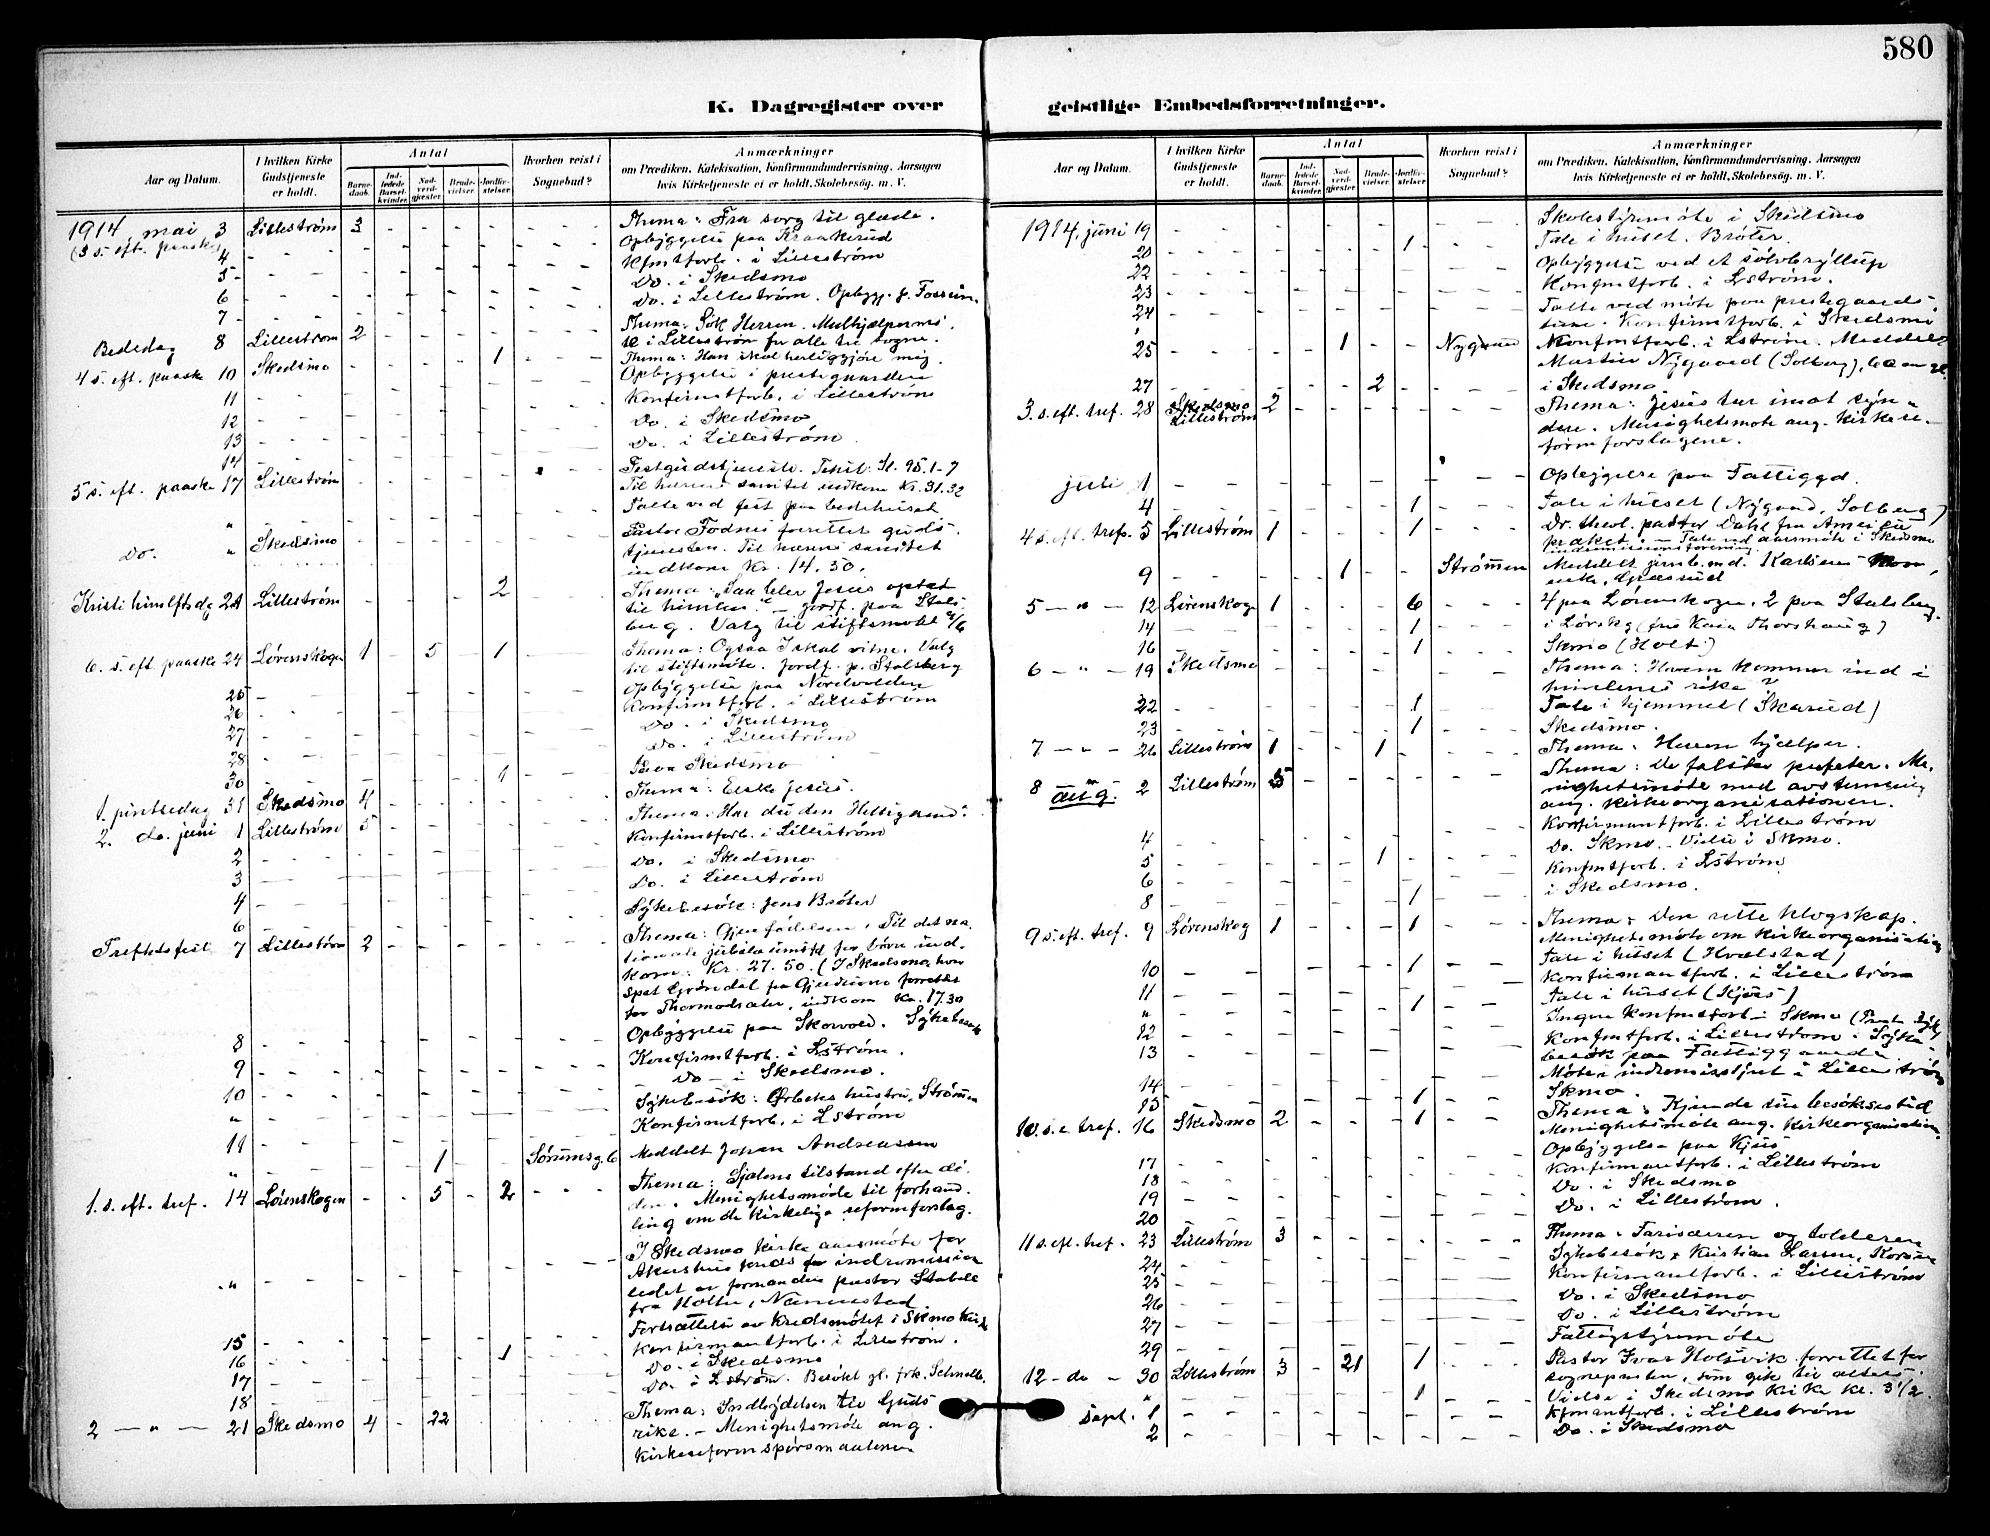 580
K. Dagregister over geistlige Embedsforretninger.
Aar og Datum.
I hvilken Kirke Gudstjeneste er holdt.
Antal
Barnedaab.
Indledede Barselkvinder.
Nadverdgjester.
Brudevielser.
Jordfæstelser.
Hvorhen reist i Sognebud?
Anmærkninger
om Prædiken, Katekisation, Konfirmandundervisning. Aarsagen
hvis Kirketjeneste ei er holdt. Skolebesøg. m. V.
1914, mai 3 Lillestrøm 3 Thema: Fra sorg til glæde.
(3 s. eft. paaske) 4 Opbyggelse paa Kraakerud
5 Kfmtforb. i Lillestrøm
6 Do. i Skedsmo
7 Do. i Lillestrøm. Opbygg. p.
Bededag 8 Lillestrøm 2 Thema: Søk Herren.
i Lillestrøm for alle tre sogne.
4 s. eft. paaske 10 Skedsmo 1 Thema: Han skal herliggjøre mig.
Opbyggelse i prestegaarden
11 Konfirmtforb. i Lillestrøm
12 Do. i Skedsmo
13 Do. i Lillestrøm
14
5 s. eft. paaske 17 Lillestrøm Festgudstjeneste. Tekst: Sl. 95. 1-7
Til hærens sanitet indkom Kr. 31.32
" Talte ved fest paa bedehuset
Do. " Skedsmo Pastor Fodnes forrettet guds-
tjenesten. Til hærens sanitet
indkom Kr. 14.50.
Kristi himlftsdg 21 Lillestrøm 2 Thema: "Saa blev Jesus optat
til himlen." - jordf. paa Stals-
berg. Valg til stiftsmøtet
6. s. eft paaske 24 Lørenskogen 1 5 1 Thema: Ogsaa I skal vitne. Valg
til stiftsmøte. Jordf. p. Stalsberg
25 Opbyggelse paa Nordvolden
26 Konfirmtforb. i Lillestrøm
27 Do. i Skedsmo
28 Do. i Lillestrøm
30 1 Paa Skedsmo
1. pintsedag 31 Skedsmo 4 Thema: Elske Jesus.
2. do. juni 1 Lillestrøm 5 Thema: Har du den Helligaand?
2 Konfirmtforb. i Lillestrøm
3 Do. i Skedsmo
4 Do. i Lillestrøm
6 Sykebesøk: Jens Brøter
Trefhdsfest 7 Lillestrøm 2 Thema: Gjenfødelsen. Til det na-
tionale jubilæumsfd for børn ind-
kom: Kr. 27.50. (I Skedsmo, hvor
Grøndal fra Gjerdrum forrettet
for Thormodsæter, indkom Kr. 17.30
8 Opbyggelse paa Skovvold. Sykebesøk
9 Konfirmtforb. i Lstrøm.
10 Do - i Skedsmo.
" Sykebesøk: Ørbeks hustru, Strømmen
11 Konfirmtforb. i Lstrøm
" 1 Sørumsg. 6 Meddelt Johan Andreassen
1. s. eft. tref. 14 Lørenskogen 5 2 Thema: Sjælens tilstand efter dø-
den. Menighetsmøde til forhand-
ling om de kirkelige reformforslag.
" I Skedsmo kirke aarsmøte for
Akershus fonds for indremission
ledet av formanden pastor Stabell
fra Holter, Nannestad
15 Fortsættelse av kredsmøtet i Skmo Kirke
16 1 Konfirmantforb. i Lillestrøm.
17 Do. i Skedsmo
18 Do. i Lstrøm. Besøkt gl. frk. Schnell
2 — " — 21 Skedsmo 4 22 Thema: Indbydelsen til Guds
rike. - Menighetsmøte ang.
kirkereformspørsmaalene
K. Dagregister over geistlige Embedsforretninger.
Aar og Datum.
I hvilken Kirke Gudstjeneste er holdt.
Antal
Barnedaab.
Indledede Barselkvinder.
Nadverdgjester.
Brudevielser.
Jordfæstelser.
Hvorhen reist i Sognebud?
Anmærkninger
om Prædiken, Katekisation, Konfirmandundervisning. Aarsagen
hvis Kirketjeneste ei er holdt. Skolebesøg. m. V.
1914, juni 19 Skolestyremøte i Skedsmo
20 1 Tale i huset. Brøter.
22 Opbyggelse ved et sølvbryllup
23 Konfirmtforb. i Lstrøm.
24 Talte ved møte paa prestegaards-
Konfirmtforb. i Skedsmo
25 1 Nygaard Konfirmtforb. i Lstrøm. Meddelt
Martin Nygaard (Solberg),
27 2 i Skedsmo.
3. s. eft. tref. 28 Skedsmo Lillestrøm 2 Thema: Jesus tar imot syn-
dere. Menighetsmøte ang. kirkere-
formforslagene.
juli 1 Opbyggelse paa Fattiggd.
4 1 Tale i huset (Nygaard, Solberg)
4 s. eft. tref. 5 Lillestrøm 1 1 Dr. theol. pastor Dahl fra Amerika
præket. - Tale ved aarsmøte i Skedsmo
indremissionsforening.
9 1 Strømmen Meddelt jernb.md. Karlsen
5 — " — 12 Lørenskogen 1 6 4 paa Lørenskogen, 2 paa Stalsberg.
14 1 i Lørskg (frk Kaia Thorshaug)
16 1 Skmo (Holt)
6 — " — 19 Skedsmo Thema: Hvem kommer ind i
himlenes rike?
22 1 Tale i hjemmet (Skarud)
23 1 Skedsmo.
7 — " — 26 Lillestrøm 1 1 Thema: Herren hjælper.
8 " aug. 2 Lillestrøm 5 Thema: De falske profeter. Me-
nighetsmøte med avstemning
ang. kirkeorganisationen.
4 Konfirmantforb. i Lillestrøm
5 1 Do. Skmo. - Vielse i Skmo.
6 Konfmtforb. i Lstrøm
8 1 i Skedsmo.
9 s. eft. tref. 9 Lørenskog 1 1 Thema: Den rette klogskap.
Menighetsmøte om kirkeorganisation
10 1 Tale i huset (Hvalstad)
11 Konfirmantforb. i Lillestrøm
" 1 Tale i huset (Kjøs)
12 Ingen konfmtforb. i Skmo
13 Konfmtforb. i Lillestrøm. Syke-
besøk paa Fattiggaarden.
14 Møte i indremisstyret i Lillestrøm
15 1 Skmo.
10. s. e. tref. 16 Skedsmo 2 1 Thema: Kjende sin besøkelsestid
Menighetsmøte ang. kirkeorganisation.
17 Opbyggelse paa Kjus
18 Konfirmantforb. i Lillestrøm
19 Do. i Skedsmo
20 Do. i Lillestrøm.
11 s. eft. tref. 23 Lillestrøm 3 Thema: Farisæeren og tolderen
24 Sykebesøk: Kristian Larsen,
25 Konfirmantforb. i Lillestrøm
26 Do. i Skedsmo
27 Do. i Lillestrøm
29 Fattigstyremøte
12 — do — 30 Lillestrøm 3 21 1 Pastor Ivar Holsvik forrettet for
sognepresten, som gik til alters.
" 1 Vielse i Skedsmo kirke kl. 3 1/2.
Sept. 1 Kfmantforb. i Lillestrøm
2 Do. i Skedsmo